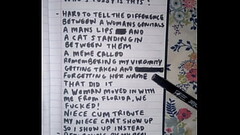 - HARD TO TELL THE DIFFERENCE
BETWEEN A WOMANS GENITALS
A MANS LIPS AND
A CAT STANDING IN
BETWEEN THEM
A MEME CALLED
REMEMBERING MY VIRGINITY
GETTING TAKEN AND
FORGETTING HER NAME
THAT DID IT
A WOMAN MOVED IN WITH
ME FROM FLORIDA, WE
FUCKED!
NIECE CUM TRIBUTE
MY NIECE CANT SHOW UP
SO I SHOW UP INSTEAD